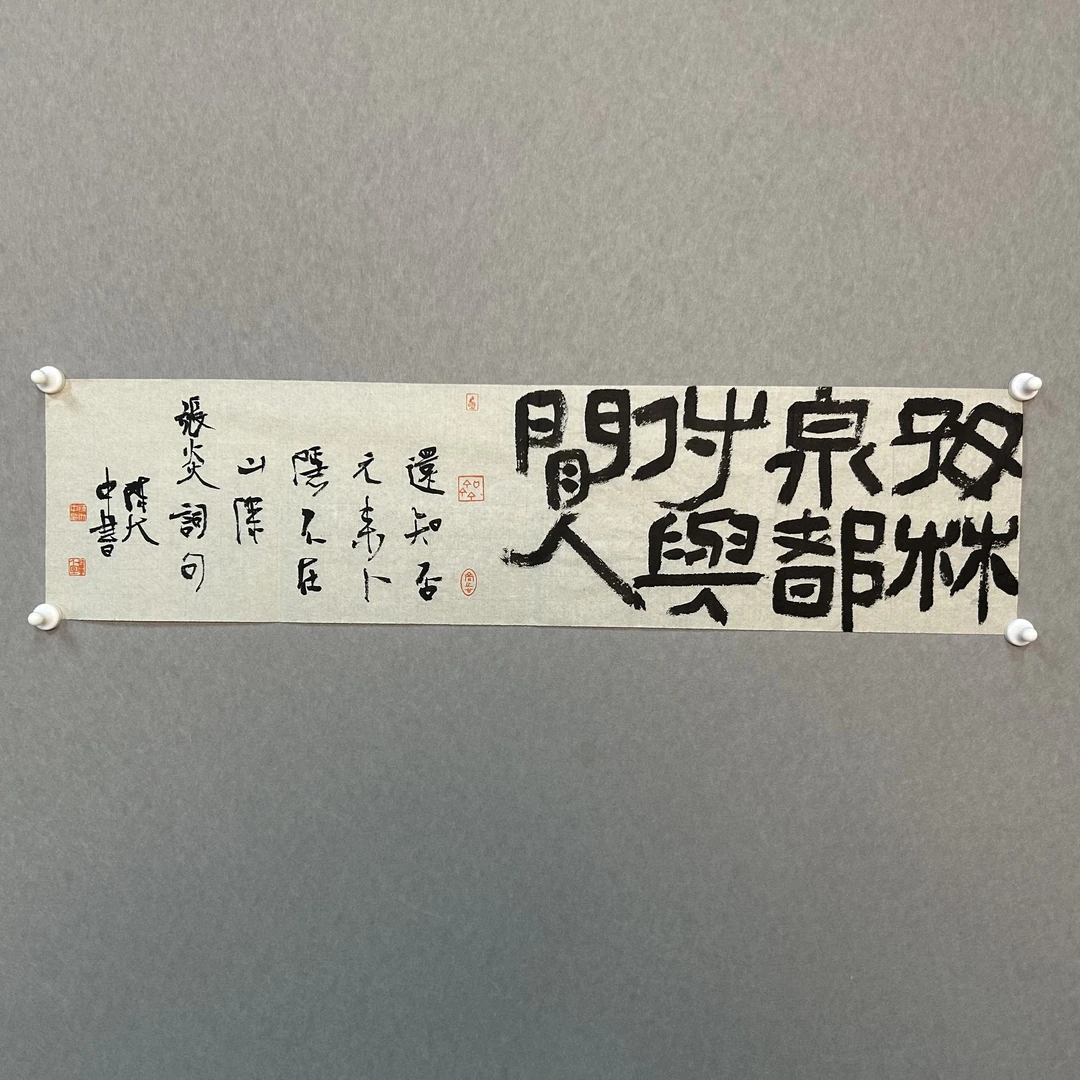 好林
泉都
付與
間人
還知否
元來卜
隱不在
山深
張炎詞句
陳大
中書